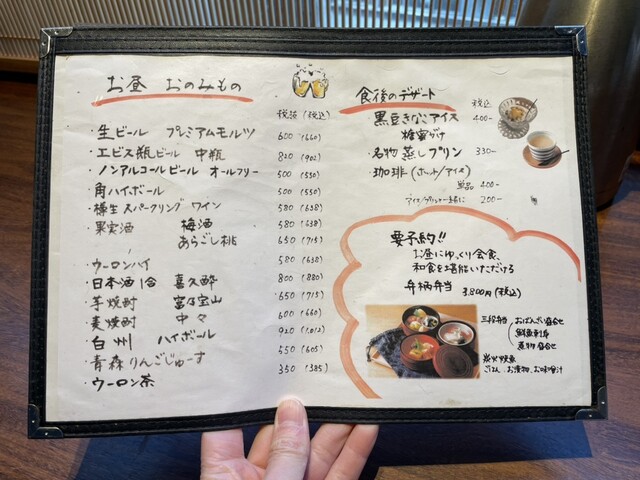 お昼 おのみもの
税抜(税込)
・生ビール プレミアムモルツ 600(660)
・エビス瓶ビール 中瓶 820(902)
・ノンアルコールビール オールフリー 500(550)
・角ハイボール 500(550)
・樽生スパークリングワイン 580(638)
・果実酒 梅酒 580(638)
あらごし桃 650(715)
・ウーロンハイ 580(638)
・日本酒1合 喜久酔 800(880)
・芋焼酎 富乃宝山 650(715)
・麦焼酎 中々 600(660)
・白州 ハイボール 920(1,012)
・青森りんごじゅーす 550(605)
・ウーロン茶 350(385)
食後のデザート
税込
・黒豆きなこアイス 400-
糖蜜がけ
・名物 蒸しプリン 330-
・珈琲(ホット/アイス)
単品 400-
アイス/プリンと一緒に 200-
要予約!!
お昼にゆっくり会食、
和食を堪能いただける
弁柄弁当 3,800円(税込)
三段弁当 おばんざい盛合せ
鮮魚刺身
煮物盛合せ
炭火焼魚
ごはん、お漬物、お味噌汁